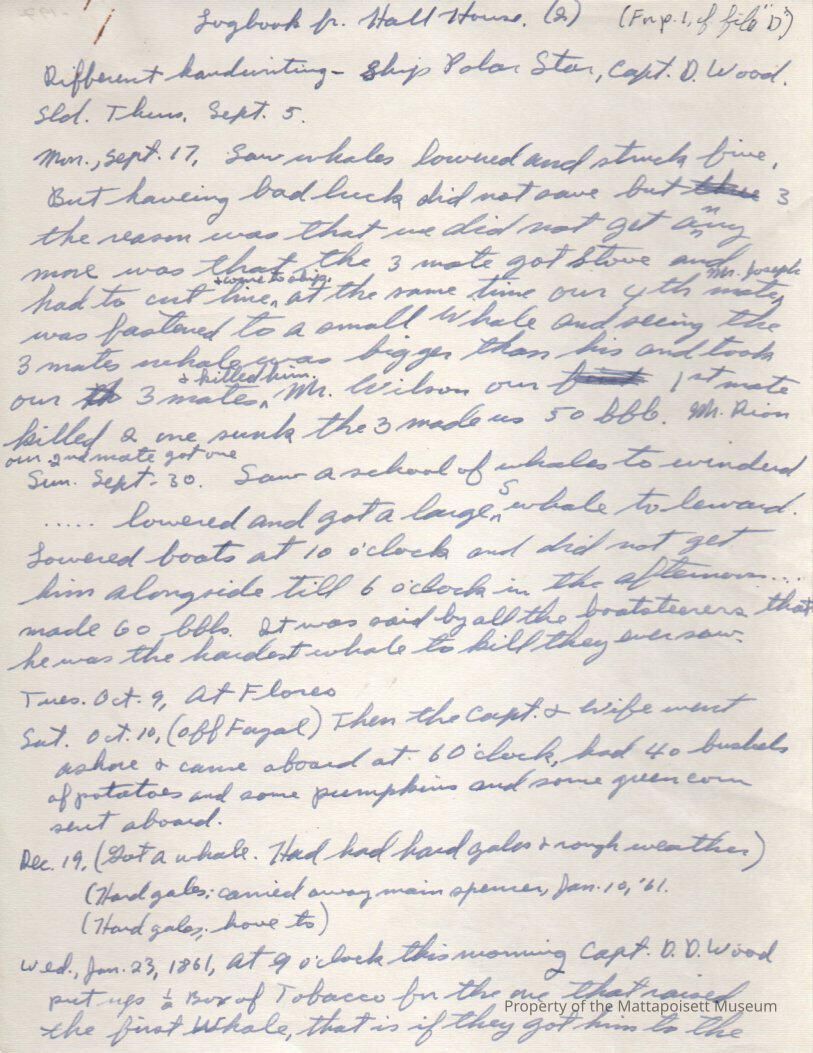 Logbook fr. Hall House. (2) (For p. 1, cf file "D")
Different handwriting - Ship Polar Star, Capt. D. Wood.
Sld. Thurs. Sept. 5.
Mon., Sept. 17, Saw whales lowered and struck five,
But haveing bad luck did not save but three 3
the reason was that we did not get anny
more was that the 3 mate got stove and
had to cut line, & were to a big. at the same time our 4th mate, Mr. Joseph
was fastened to a small whale and seeing the
3 mates whale was bigger than his and took
our th 3 mates & killed him. Mr. Wilson our first 1st mate
killed 2 one sunk the 3 made us 50 bbls. Mr. Dion
our 2nd mate got one
Sun. Sept. 30. Saw a school of whales to winderd
..... lowered and got a large S whale to leward.
Lowered boats at 10 o'clock and did not get
him alongside till 6 o'clock in the afternoon....
made 60 bbls. It was said by all the boatsteerers that
he was the hardest whale to kill they ever saw.
Tues. Oct. 9, At Flores
Sat. Oct. 10, (off Fayal) Then the Capt. & wife went
ashore & came aboard at 6 o'clock, had 40 bushels
of potatoes and some pumpkins and some green corn
sent aboard.
Dec. 19, (Got a whale. Had had hard gales & rough weather)
(Hard gales; carried away main spencer, Jan. 10, '61.
(Hard gales; hove to)
Wed., Jan. 23, 1861, At 9 o'clock this morning Capt. D. D. Wood
put up ½ Box of Tobacco for the one that raised
the first whale, that is if they got him to the
Property of the Mattapoisett Museum